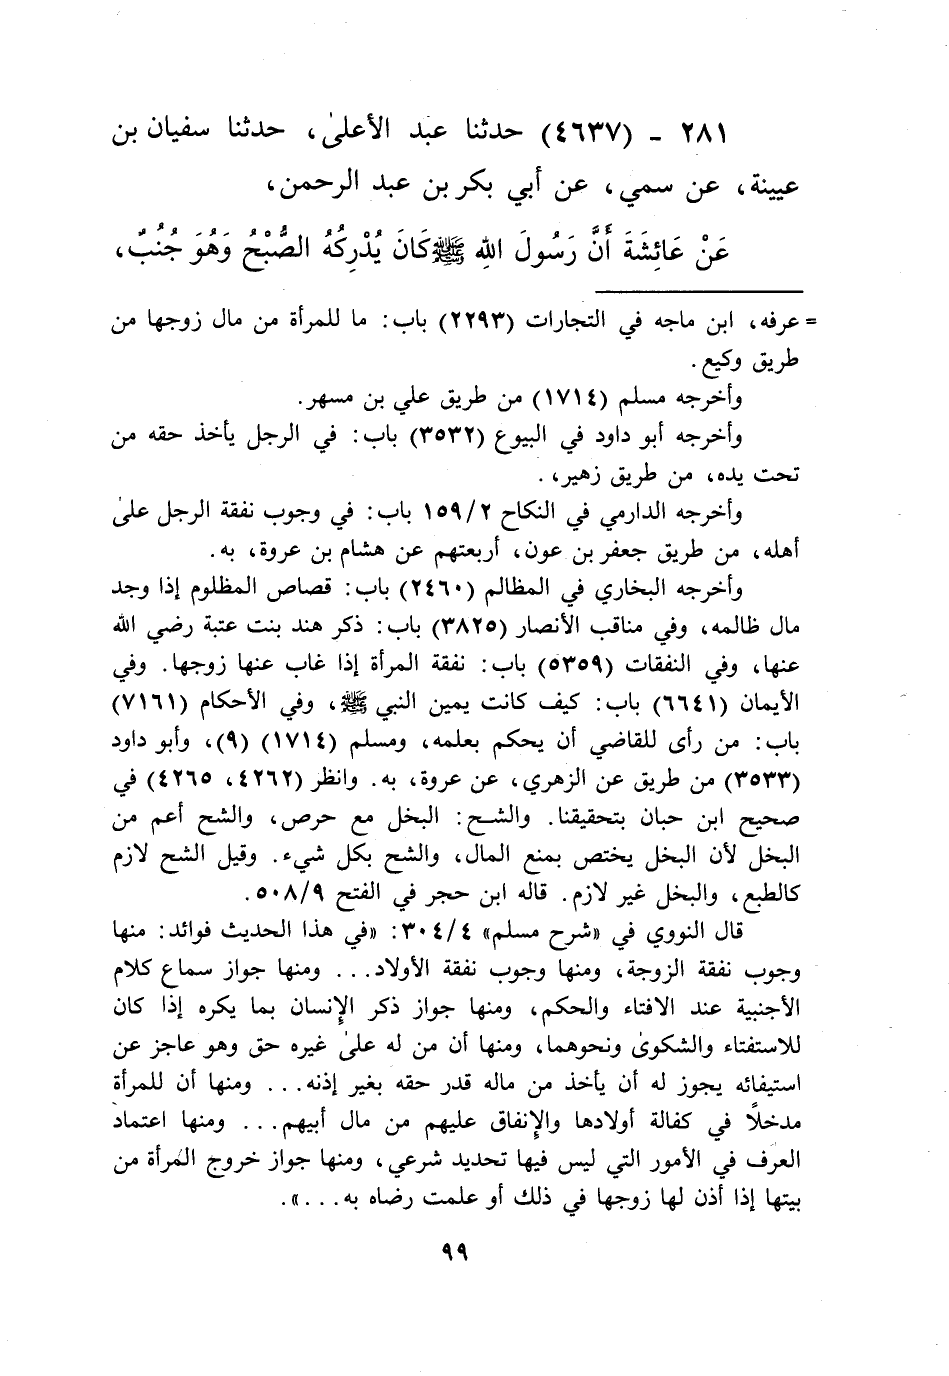 ٢٨١ ـ (٤٦٣٧) حدثنا عبد الأعلىٰ، حدثنا سفيان بن
عيينة، عن سمي، عن أبي بكر بن عبد الرحمن،
عَنْ عَائِشَةَ أَنَّ رَسُولَ اللهِ ﷺ كَانَ يُدْرِكُهُ الصُّبْحُ وَهُوَ جُنُبٌ،
= عرفه، ابن ماجه في التجارات (٢٢٩٣) باب: ما للمرأة من مال زوجها من
طريق وكيع.
وأخرجه مسلم (١٧١٤) من طريق علي بن مسهر.
وأخرجه أبو داود في البيوع (٣٥٣٢) باب: في الرجل يأخذ حقه من
تحت يده، من طريق زهير،.
وأخرجه الدارمي في النكاح ١٥٩/٢ باب: في وجوب نفقة الرجل علىٰ
أهله، من طريق جعفر بن عون، أربعتهم عن هشام بن عروة، به.
وأخرجه البخاري في المظالم (٢٤٦٠) باب: قصاص المظلوم إذا وجد
مال ظالمه، وفي مناقب الأنصار (٣٨٢٥) باب: ذكر هند بنت عتبة رضي الله
عنها، وفي النفقات (٥٣٥٩) باب: نفقة المرأة إذا غاب عنها زوجها. وفي
الأيمان (٦٦٤١) باب: كيف كانت يمين النبي ﷺ، وفي الأحكام (٧١٦١)
باب: من رأى للقاضي أن يحكم بعلمه، ومسلم (١٧١٤) (٩)، وأبو داود
(٣٥٣٣) من طريق عن الزهري، عن عروة، به. وانظر (٤٢٦٢، ٤٢٦٥) في
صحيح ابن حبان بتحقيقنا. والشح: البخل مع حرص، والشح أعم من
البخل لأن البخل يختص بمنع المال، والشح بكل شيء. وقيل الشح لازم
كالطبع، والبخل غير لازم. قاله ابن حجر في الفتح ٥٠٨/٩.
قال النووي في «شرح مسلم» ٣٠٤/٤: «في هذا الحديث فوائد: منها
وجوب نفقة الزوجة، ومنها وجوب نفقة الأولاد... ومنها جواز سماع كلام
الأجنبية عند الافتاء والحكم، ومنها جواز ذكر الإنسان بما يكره إذا كان
للاستفتاء والشكوىٰ ونحوهما، ومنها أن من له علىٰ غيره حق وهو عاجز عن
استيفائه يجوز له أن يأخذ من ماله قدر حقه بغير إذنه... ومنها أن للمرأة
مدخلاً في كفالة أولادها والإنفاق عليهم من مال أبيهم... ومنها اعتماد
العرف في الأمور التي ليس فيها تحديد شرعي، ومنها جواز خروج المرأة من
بيتها إذا أذن لها زوجها في ذلك أو علمت رضاه به...».
٩٩